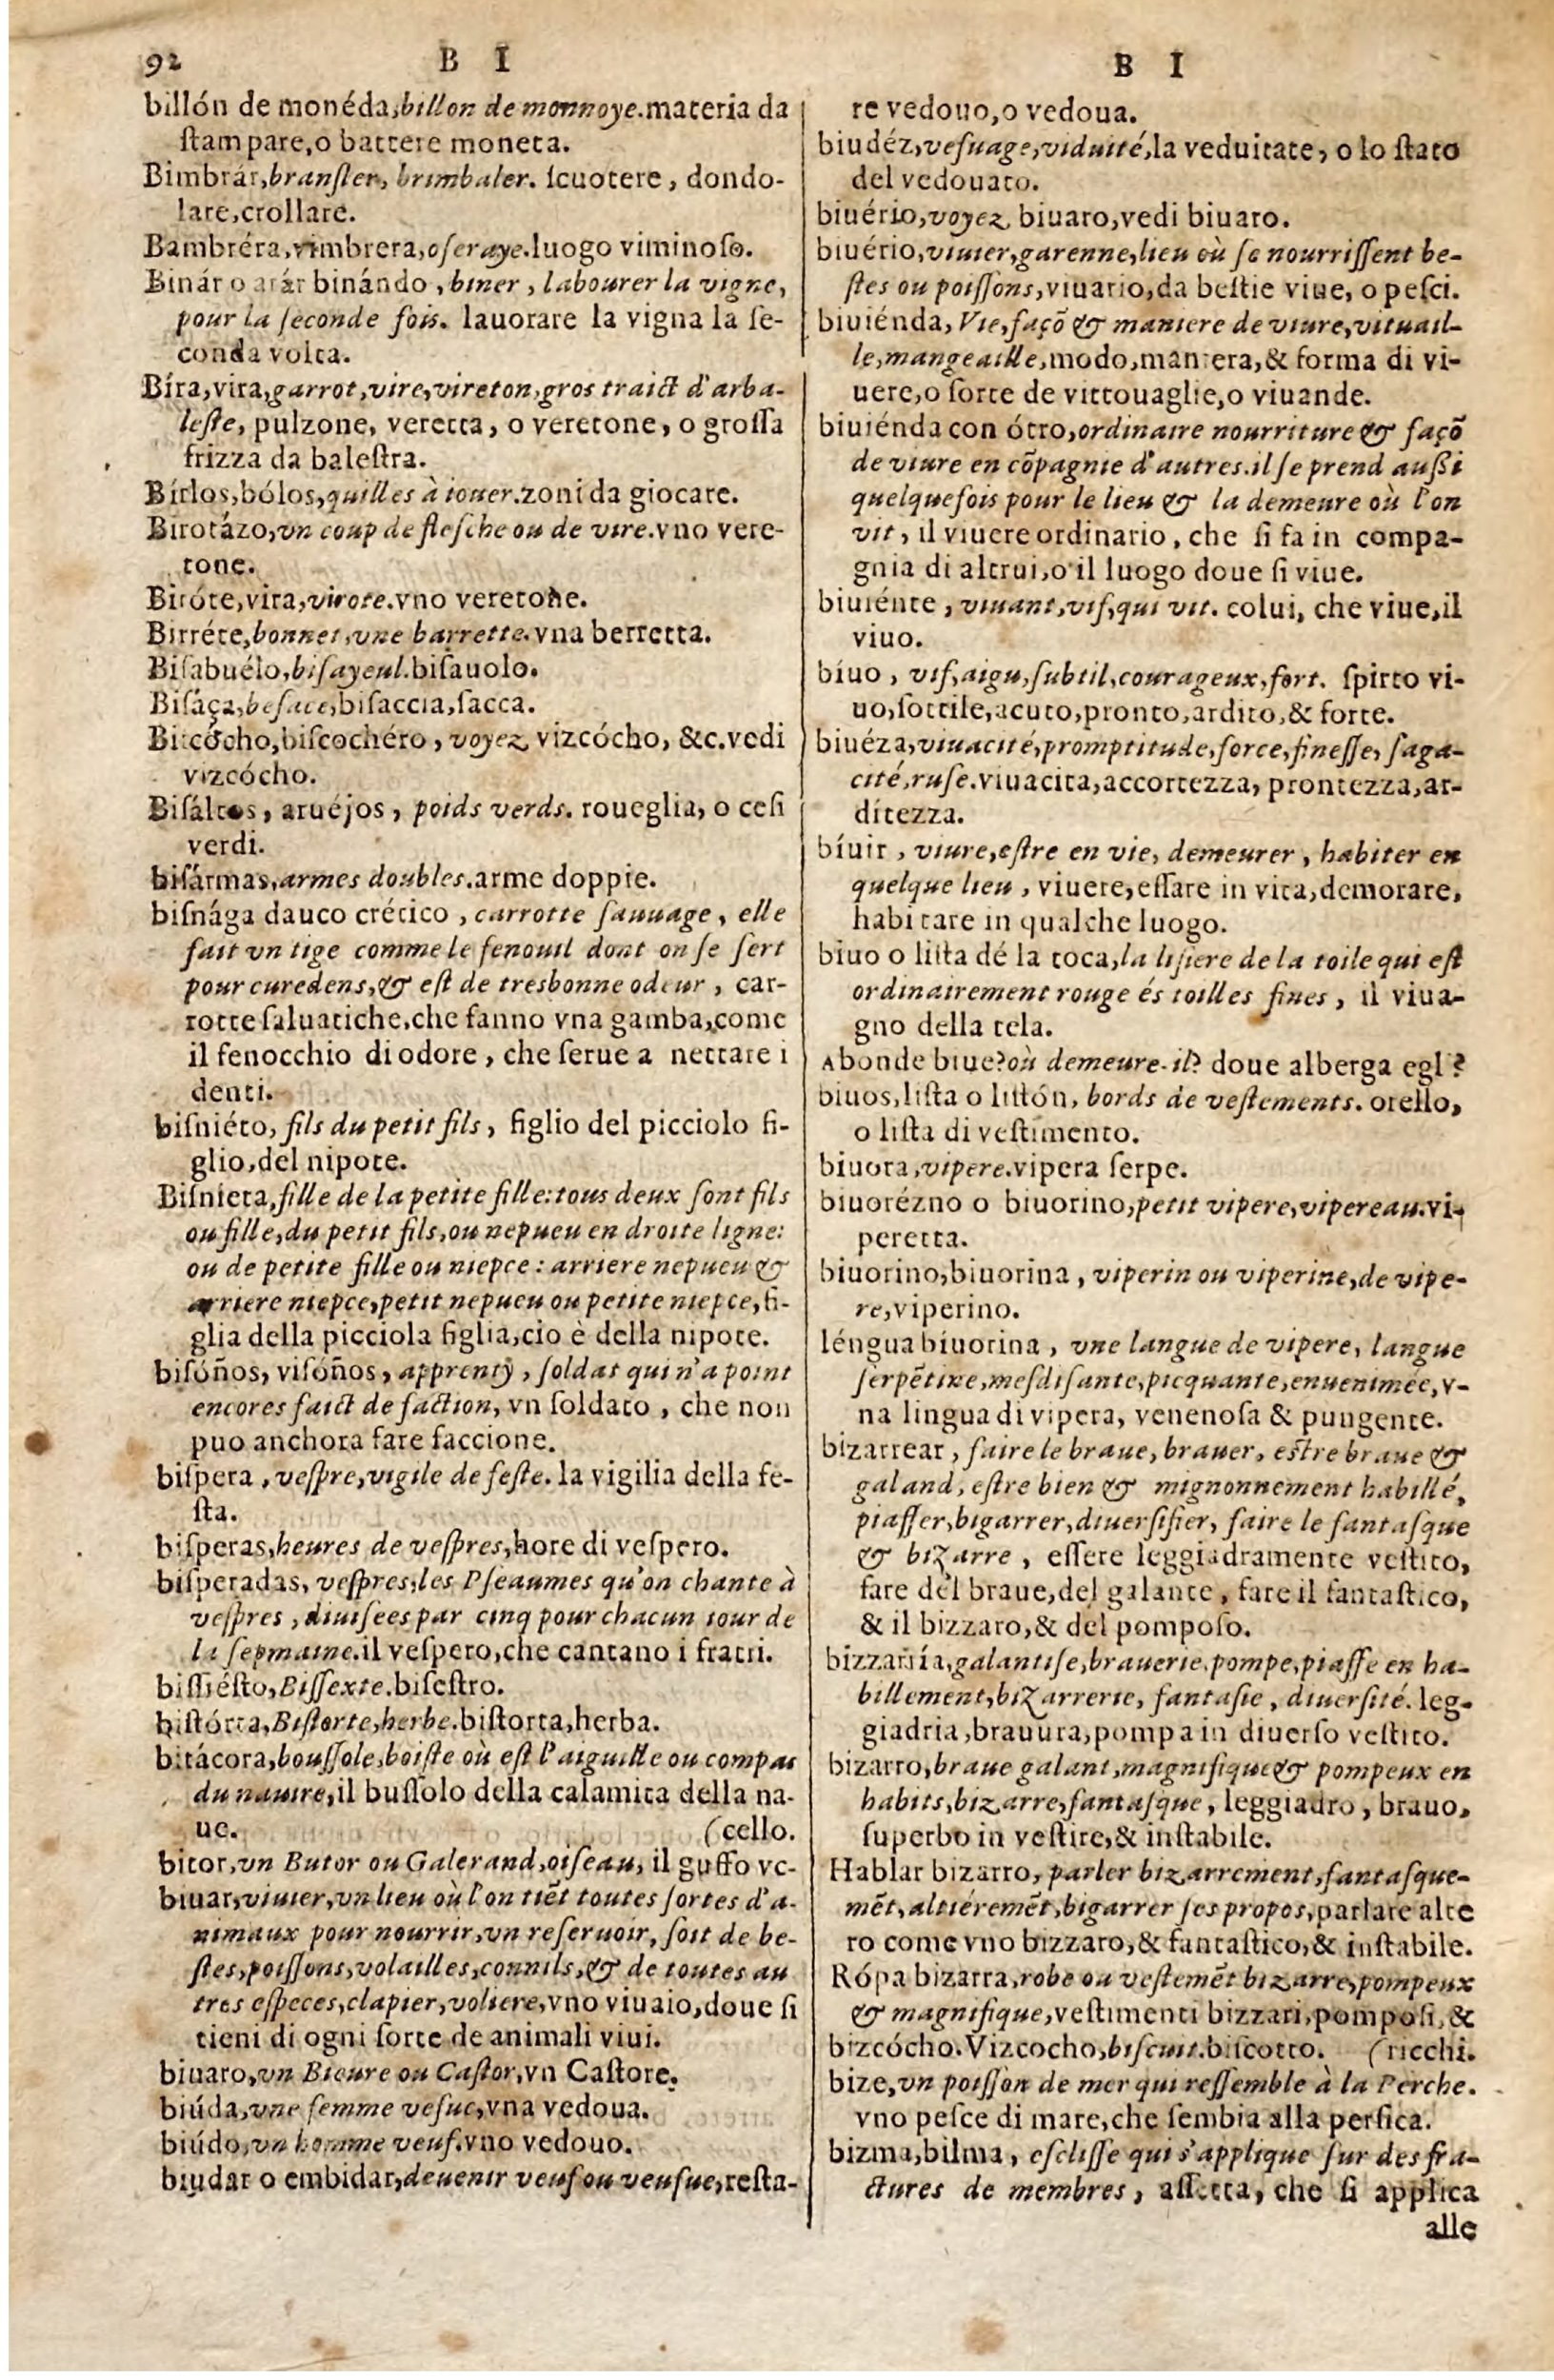 92 B I
billón de monéda, billon de monnoye. materia da
ſtampare, o battere moneta.
Bimbrár, branſler, brimbaler. ſcuotere, dondo-
lare, crollare.
Bambréra, vimbrera, oſeraye. luogo viminoſo.
Binár o arár binándo, biner, labourer la vigne,
pour la ſeconde fois. lauorare la vigna la ſe-
conda volta.
Bíra, vira, garrot, vire, vireton, gros traict d'arba-
leſte, pulzone, veretta, o veretone, o groſſa
frizza da baleſtra.
Bírlos, bólos, quilles à iouer. zoni da giocare.
Birotázo, vn coup de fleſche ou de vire. vno vere-
tone.
Biróte, vira, virote. vno veretone.
Birréte, bonnet, vne barrette. vna berretta.
Biſabuélo, biſayeul. biſauolo.
Biſáça, beſace, biſaccia, ſacca.
Bitcócho, biſcochéro, voyez vizcócho, &c. vedi
vizcócho.
Biſáltos, aruéjos, poids verds. roueglia, o ceſi
verdi.
biſármas, armes doubles. arme doppie.
biſnága dauco crético, carrotte ſauuage, elle
fait vn tige comme le fenouil dont on ſe ſert
pour curedens, & eſt de tresbonne odeur, car-
rotte ſaluatiche, che fanno vna gamba, come
il fenocchio di odore, che ſerue a nettare i
denti.
biſniéto, fils du petit fils, figlio del picciolo fi-
glio, del nipote.
Biſnieta, fille de la petite fille: tous deux ſont fils
ou fille, du petit fils, ou nepueu en droite ligne:
ou de petite fille ou niepce: arriere nepueu &
arriere niepce, petit nepueu ou petite niepce, fi-
glia della picciola figlia, cio è della nipote.
biſóños, viſóños, apprentỹ, ſoldat qui n'a point
encores faict de faction, vn ſoldato, che non
puo anchora fare faccione.
biſpera, veſpre, vigile de feſte. la vigilia della fe-
ſta.
biſperas, heures de veſpres, hore di veſpero.
biſperadas, veſpres, les Pſeaumes qu'on chante à
veſpres, diuiſees par cinq pour chacun iour de
la ſepmaine. il veſpero, che cantano i fratri.
biſſiéſto, Biſſexte. biſeſtro.
biſtórta, Biſtorte, herbe. biſtorta, herba.
bitácora, bouſſole, boiſte où eſt l'aiguille ou compas
du nauire, il buſſolo della calamita della na-
ue. (cello.
bitor, vn Butor ou Galerand, oiſeau, il guffo vc-
biuar, viuier, vn lieu où l'on tiẽt toutes ſortes d'a-
nimaux pour nourrir, vn reſeruoir, ſoit de be-
ſtes, poiſſons, volailles, connils, & de toutes au
tres eſpeces, clapier, voliere, vno viuaio, doue ſi
tieni di ogni ſorte de animali viui.
biuaro, vn Bieure ou Caſtor, vn Caſtore.
biúda, vne femme veſue, vna vedoua.
biúdo, vn homme veuf. vno vedouo.
biudar o embidar, deuenir veuf ou veuſue, reſta-
B I
re vedouo, o vedoua.
biudéz, veſuage, viduité, la veduitate, o lo ſtato
del vedouato.
biuério, voyez biuaro, vedi biuaro.
biuério, viuier, garenne, lieu où ſe nourriſſent be-
ſtes ou poiſſons, viuario, da beſtie viue, o peſci.
biuiénda, Vie, façõ & maniere de viure, vituail-
le, mangeaille, modo, maniera, & forma di vi-
uere, o ſorte de vittouaglie, o viuande.
biuiénda con ótro, ordinaire nourriture & façõ
de viure en cõpagnie d'autres. il ſe prend außi
quelquefois pour le lieu & la demeure où l'on
vit, il viuere ordinario, che ſi fa in compa-
gnia di altrui, o il luogo doue ſi viue.
biuiénte, viuant, vif, qui vit. colui, che viue, il
viuo.
bíuo, vif, aigu, ſubtil, courageux, fort. ſpirto vi-
uo, ſottile, acuto, pronto, ardito, & forte.
biuéza, viuacité, promptitude, force, fineſſe, ſaga-
cité, ruſe. viuacita, accortezza, prontezza, ar-
ditezza.
bíuir, viure, eſtre en vie, demeurer, habiter en
quelque lieu, viuere, eſſare in vita, demorare,
habitare in qualche luogo.
biuo o liſta dé la toca, la liſiere de la toile qui eſt
ordinairement rouge és toilles fines, il viua-
gno della tela.
Abonde biue? où demeure-il? doue alberga egl'?
biuos, liſta o liſtón, bords de veſtements. orello,
o liſta di veſtimento.
biuora, vipere. vipera ſerpe.
biuorézno o biuorino, petit vipere, vipereau. vi-
peretta.
biuorino, biuorina, viperin ou viperine, de vipe-
re, viperino.
léngua biuorina, vne langue de vipere, langue
ſerpẽtine, meſdiſante, picquante, enuenimée, v-
na lingua di vipera, venenoſa & pungente.
bizarrear, faire le braue, brauer, eſtre braue &
galand, eſtre bien & mignonnement habillé,
piaffer, bigarrer, diuerſifier, faire le fantaſque
& bizarre, eſſere leggiadramente veſtito,
fare del braue, del galante, fare il fantaſtico,
& il bizzaro, & del pompoſo.
bizzarría, galantiſe, brauerie, pompe, piaffe en ha-
billement, bizarrerie, fantaſie, diuerſité. leg-
giadria, brauura, pompa in diuerſo veſtito.
bizarro, braue galant, magnifique & pompeux en
habits, bizarre, fantaſque, leggiadro, brauo,
ſuperbo in veſtire, & inſtabile.
Hablar bizarro, parler bizarrement, fantaſque-
mẽt, altiéremẽt, bigarrer ſes propos, parlare alte
ro come vno bizzaro, & fantaſtico, & inſtabile.
Rópa bizarra, robe ou veſtemẽt bizarre, pompeux
& magnifique, veſtimenti bizzari, pompoſi, &
bizcócho. Vizcocho, biſcuit. biſcotto. (ricchi.
bize, vn poiſſon de mer qui reſſemble à la Perche.
vno peſce di mare, che ſembia alla perſica.
bizma, bilma, eſcliſſe qui s'applique ſur des fra-
ctures de membres, aſſetta, che ſi applica
alle